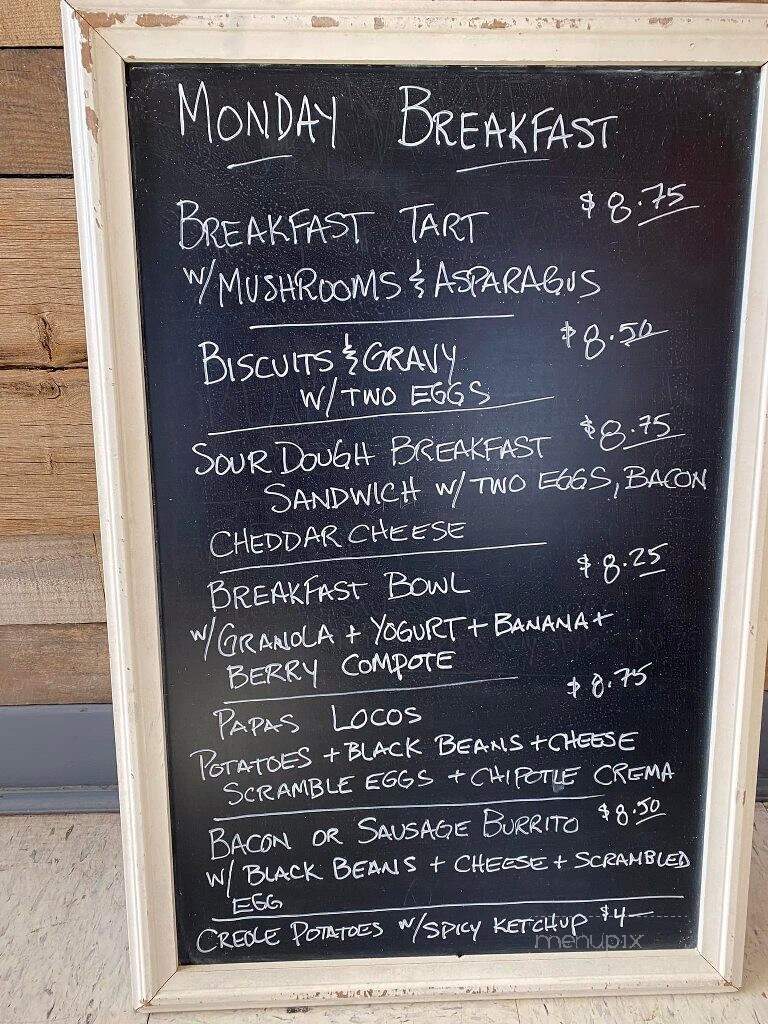 MONDAY BREAKFAST
BREAKFAST TART $8.75
W/MUSHROOMS & ASPARAGUS
BISCUITS & GRAVY $8.50
W/ TWO EGGS
SOUR DOUGH BREAKFAST $8.75
SANDWICH W/ TWO EGGS, BACON
CHEDDAR CHEESE
BREAKFAST BOWL $8.25
W/GRANOLA + YOGURT + BANANA +
BERRY COMPOTE
PAPAS LOCOS $8.75
POTATOES + BLACK BEANS + CHEESE
SCRAMBLE EGGS + CHIPOTLE CREMA
BACON OR SAUSAGE BURRITO $8.50
W/ BLACK BEANS + CHEESE + SCRAMBLED
EGG
CREOLE POTATOES W/SPICY KETCHUP $4—
menupix